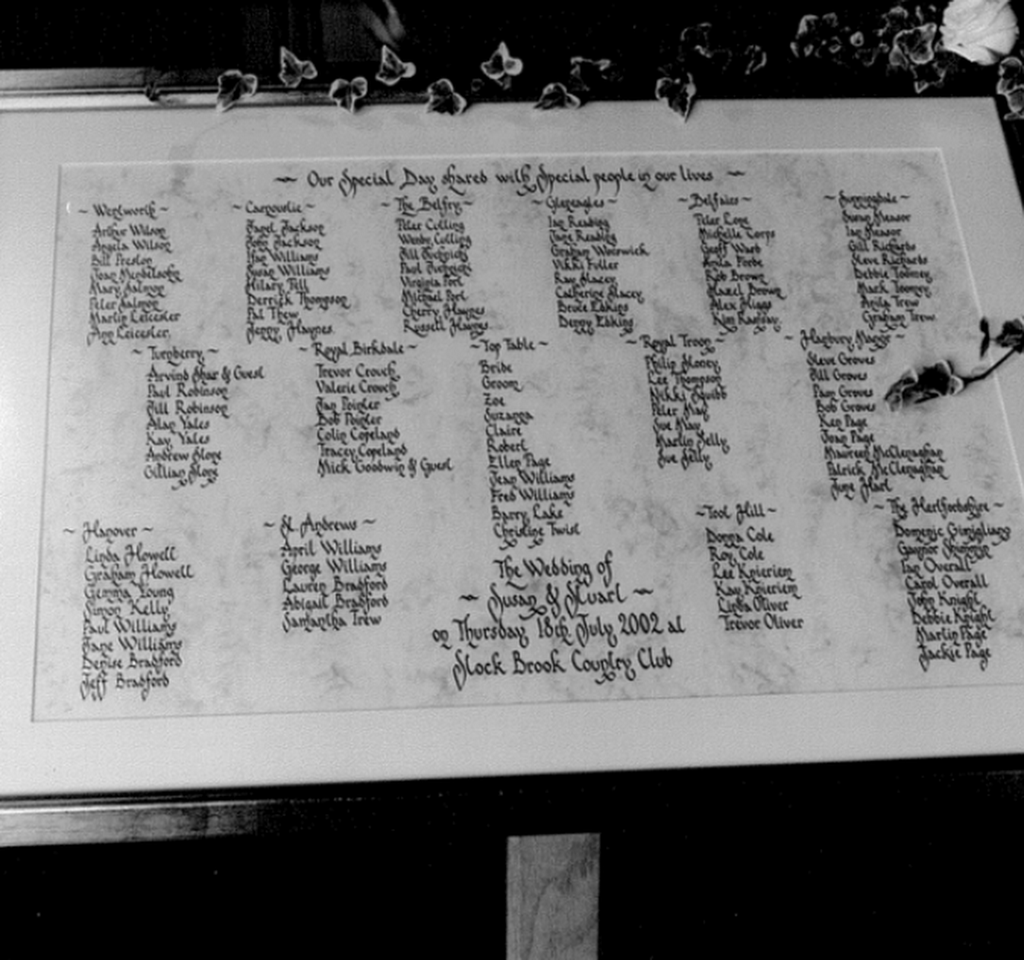 ~ Our Special Day shared with Special people in our lives ~
~ Wentworth ~
Arthur Wilson
Angela Wilson
Bill Preston
Joan Mendelsohn
Mary Salmon
Peter Salmon
Martin Leicester
Ann Leicester
~ Carnoustie ~
Janet Jackson
John Jackson
Ifan Williams
Susan Williams
Hilary Till
Derrick Thompson
Pat Thew
Jenny Haynes
~ The Belfry ~
Peter Colling
Wendy Colling
Jill
Paul
Virginia Port
Michael Port
Cherry Haynes
Russell Haynes
~ Gleneagles ~
Ian Reading
Jane Reading
Graham Worswick
Nikki Fuller
Ray Stacey
Catherine Stacey
Bruce Edkins
Denny Edkins
~ Belfairs ~
Peter Lone
Michelle Corps
Geoff Ward
Anita Forbe
Rob Brown
Hazel Brown
Alex Higgs
Kim Ramsay
~ Sunningdale ~
Susan Measor
Ian Measor
Gill Richards
Steve Richards
Debbie Toomey
Mark Toomey
Anita Trew
Graham Trew
~ Turnberry ~
Arvind Shar & Guest
Paul Robinson
Jill Robinson
Alan Yates
Kay Yates
Andrew Stone
Gillian Stone
~ Royal Birkdale ~
Trevor Crouch
Valerie Crouch
Jan Pointer
Bob Pointer
Colin Copeland
Tracey Copeland
Mick Goodwin & Guest
~ Top Table ~
Bride
Groom
Zoe
Suzanna
Claire
Robert
Ellen Page
Jean Williams
Fred Williams
Barry Lake
Christine Twist
~ Royal Troon ~
Philip Stoney
Lee Thompson
Nikki Squibb
Peter May
Sue May
Martin Jelly
Sue Jelly
~ Hanbury Manor ~
Steve Groves
Jill Groves
Pam Groves
Bob Groves
Ken Page
Joan Page
Maureen McClenaghan
Patrick McClenaghan
June Hart
~ Hanover ~
Linda Howell
Graham Howell
Gemma Young
Simon Kelly
Paul Williams
Jane Williams
Denise Bradford
Jeff Bradford
~ St. Andrews ~
April Williams
George Williams
Lauren Bradford
Abigail Bradford
Samantha Trew
~ Toot Hill ~
Donna Cole
Roy Cole
Lee Knieriem
Kay Knieriem
Linda Oliver
Trevor Oliver
~ The Hertfordshire ~
Domenic Gimigliano
Gaynor
Ian Overall
Carol Overall
John Knight
Debbie Knight
Martin Page
Jackie Page
The Wedding of
~ Susan & Stuart ~
on Thursday 18th July 2002 at
Stock Brook Country Club